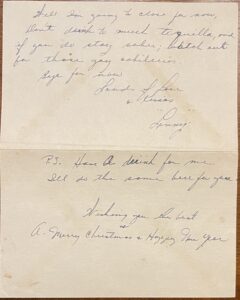 Well I'm going to close for now.
Don't drink to much tequilla, and
if you do stay sober, watch out
for those gay caballeros
Bye for now
Loads of Love
& Kisses
"Lenny"
P.S. Have A drink for me
I'll do the same here for you
Wishing you the best
of
A Merry Christmas & Happy New Year